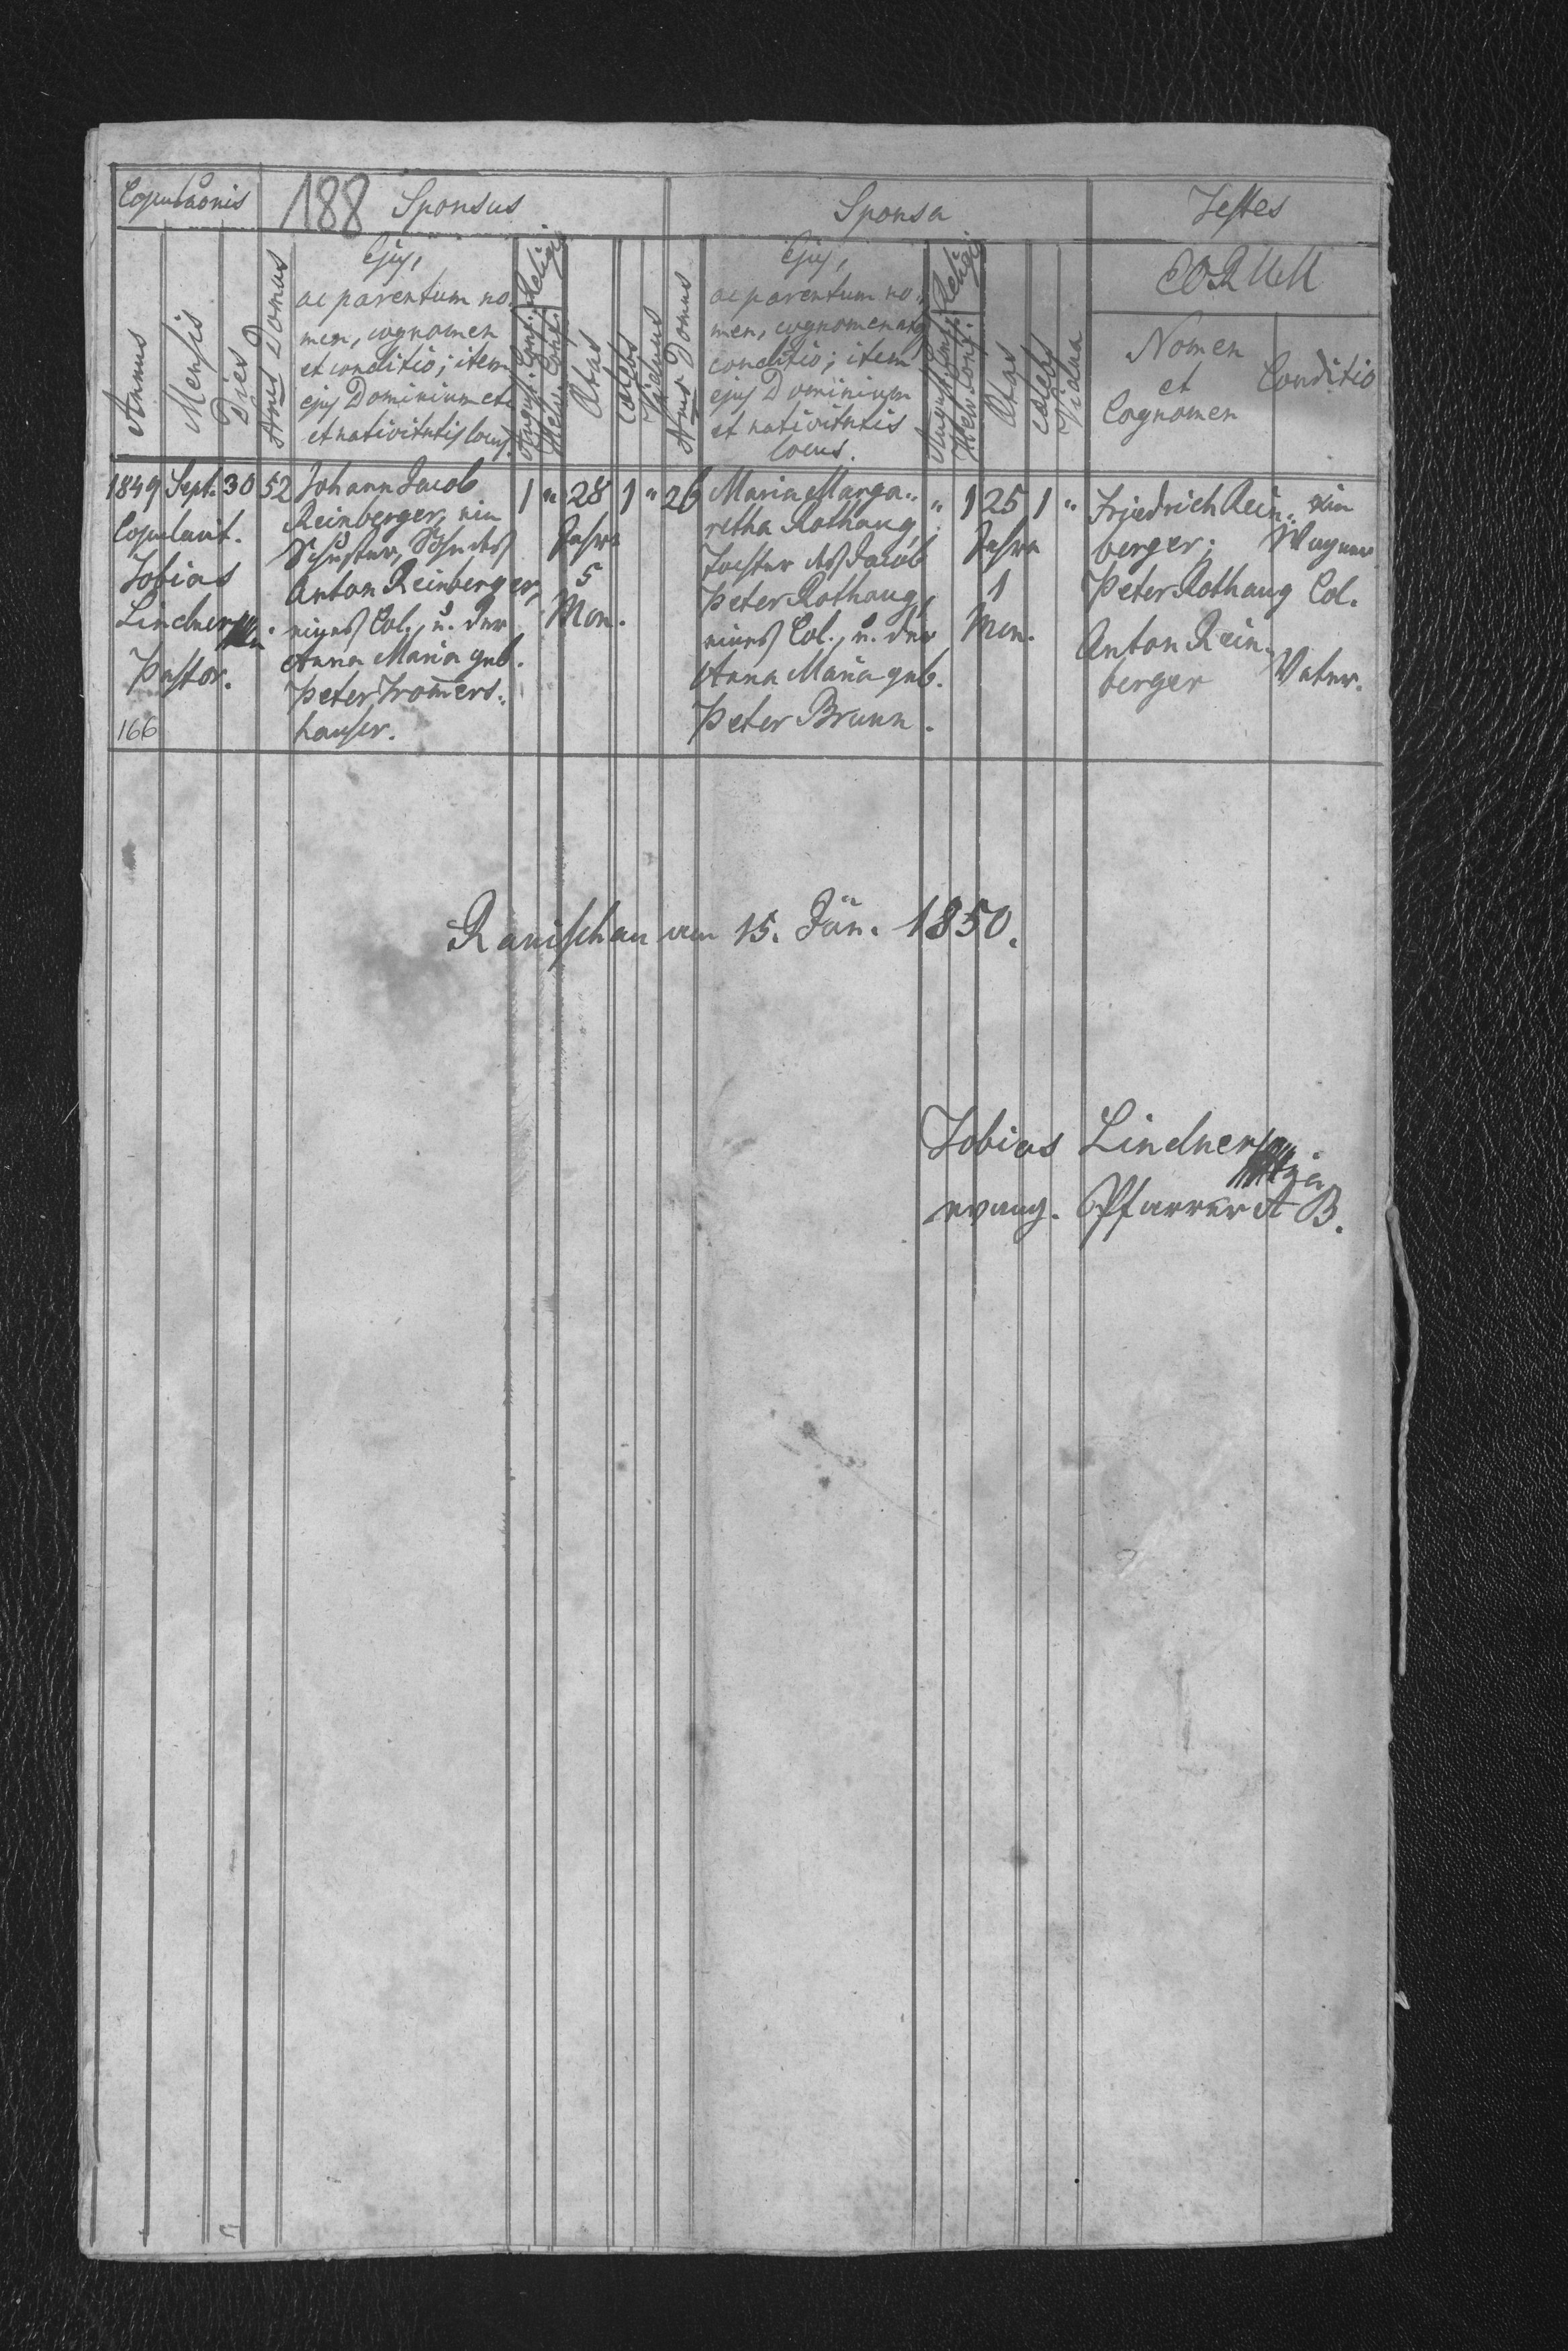 Copulaonis 188 Sponsus Sponsa Testes
Annus
Mensis
Dies
Nrus Domus
Ejus,
ac parentum no-
men, cognomen
et conditio; item
ejus Dominium et
et nativitatis locus.
Religio
August. Conf.
Helv. Conf.
Ætas
Cælebs
Viduus
Nrus Domus
Ejus,
ac parentum no-
men, cognomen atq
conditio; item
ejus Dominium
et nativitatis
locus.
Religio
August. Conf.
Helv. Conf.
Ætas
Cælebs
Vidua
EORUM
Nomen
et
Cognomen
Conditio
1849 Sept. 30 52
Copulavit.
Tobias
Lindner
Pastor.
166
Johann Jacob
Reinberger, ein
Schuster, Sohn des
Anton Reinberger,
eines Col., u. der
Anna Maria geb.
Peter Tromers-
hauser.
1 " 28 1 " 26
Jahre
5
Mon.
Maria Marga-
retha Rothaug,
Tochter des Jacob
Peter Rothaug,
eines Col., u. der
Anna Maria geb.
Peter Brunn.
" 1 25 1 "
Jahre
1
Mon.
Friedrich Rein- ein
berger; Wagner
Peter Rothaug Col.
Anton Rein-
berger Vater.
Ranischau am 15. Jän. 1850.
Tobias Lindner
evang. Pfarrer A B.